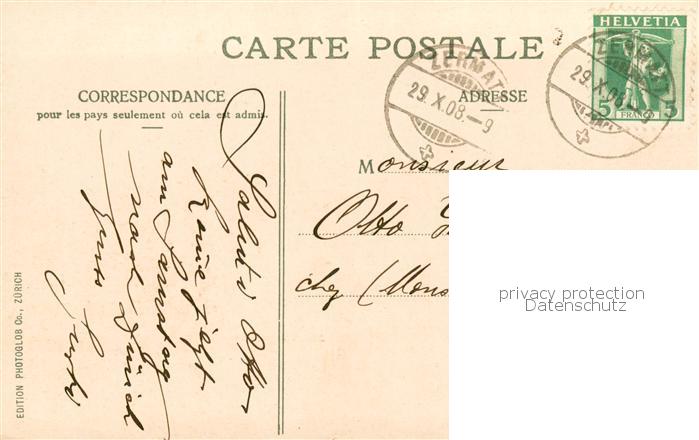 CARTE POSTALE
HELVETIA
5 FRANCO 5
ZERMATT
29.X.08.-9
ZERMATT
29.X.08.-9
CORRESPONDANCE
pour les pays seulement où cela est admis.
ADRESSE
Monsieur
Otto
chez Mons
Saluto Otto
am Samstag
nach Zürich
EDITION PHOTOGLOB Co., ZÜRICH
privacy protection
Datenschutz